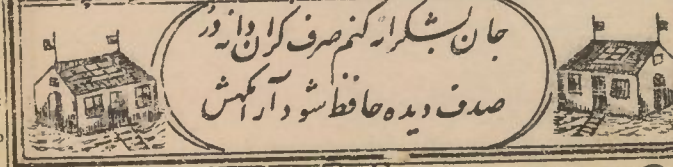 جان بشکرانه کنم صرف گر آن دانه در
صدف دیده حافظ شود آرامگهش